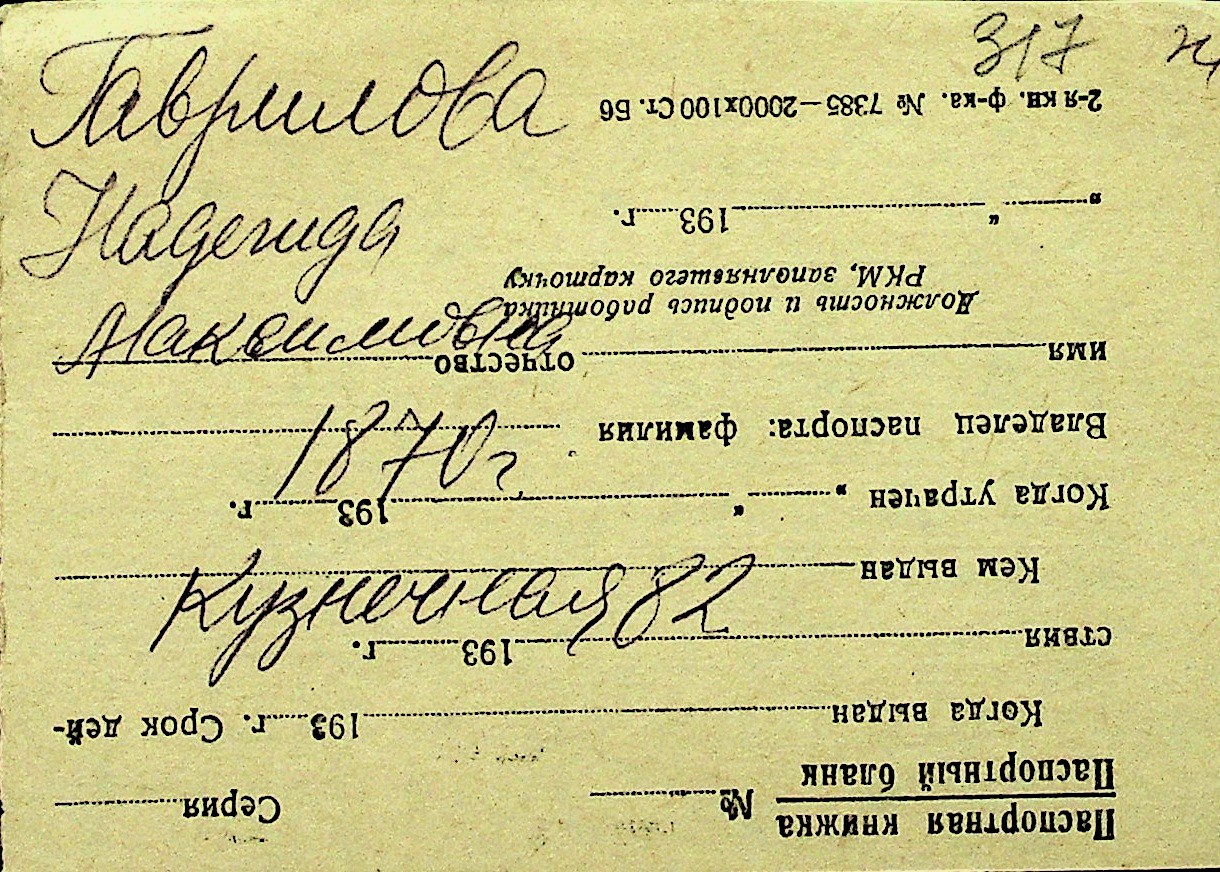 317
Гаврилова
Надежда
Максимовна
1870 г.
Кузнечная 82
Паспортная книжка
Паспортный бланк
№ Серия
Когда выдан 193 г. Срок дей-
ствия 193 г.
Кем выдан
Когда утрачен „ “ 193 г.
Владелец паспорта: фамилия
имя отчество
Должность и подпись работника
РКМ, заполнявшего карточку
„ “ 193 г.
2-я кн. ф-ка. № 7385—2000х100 Ст. Б6